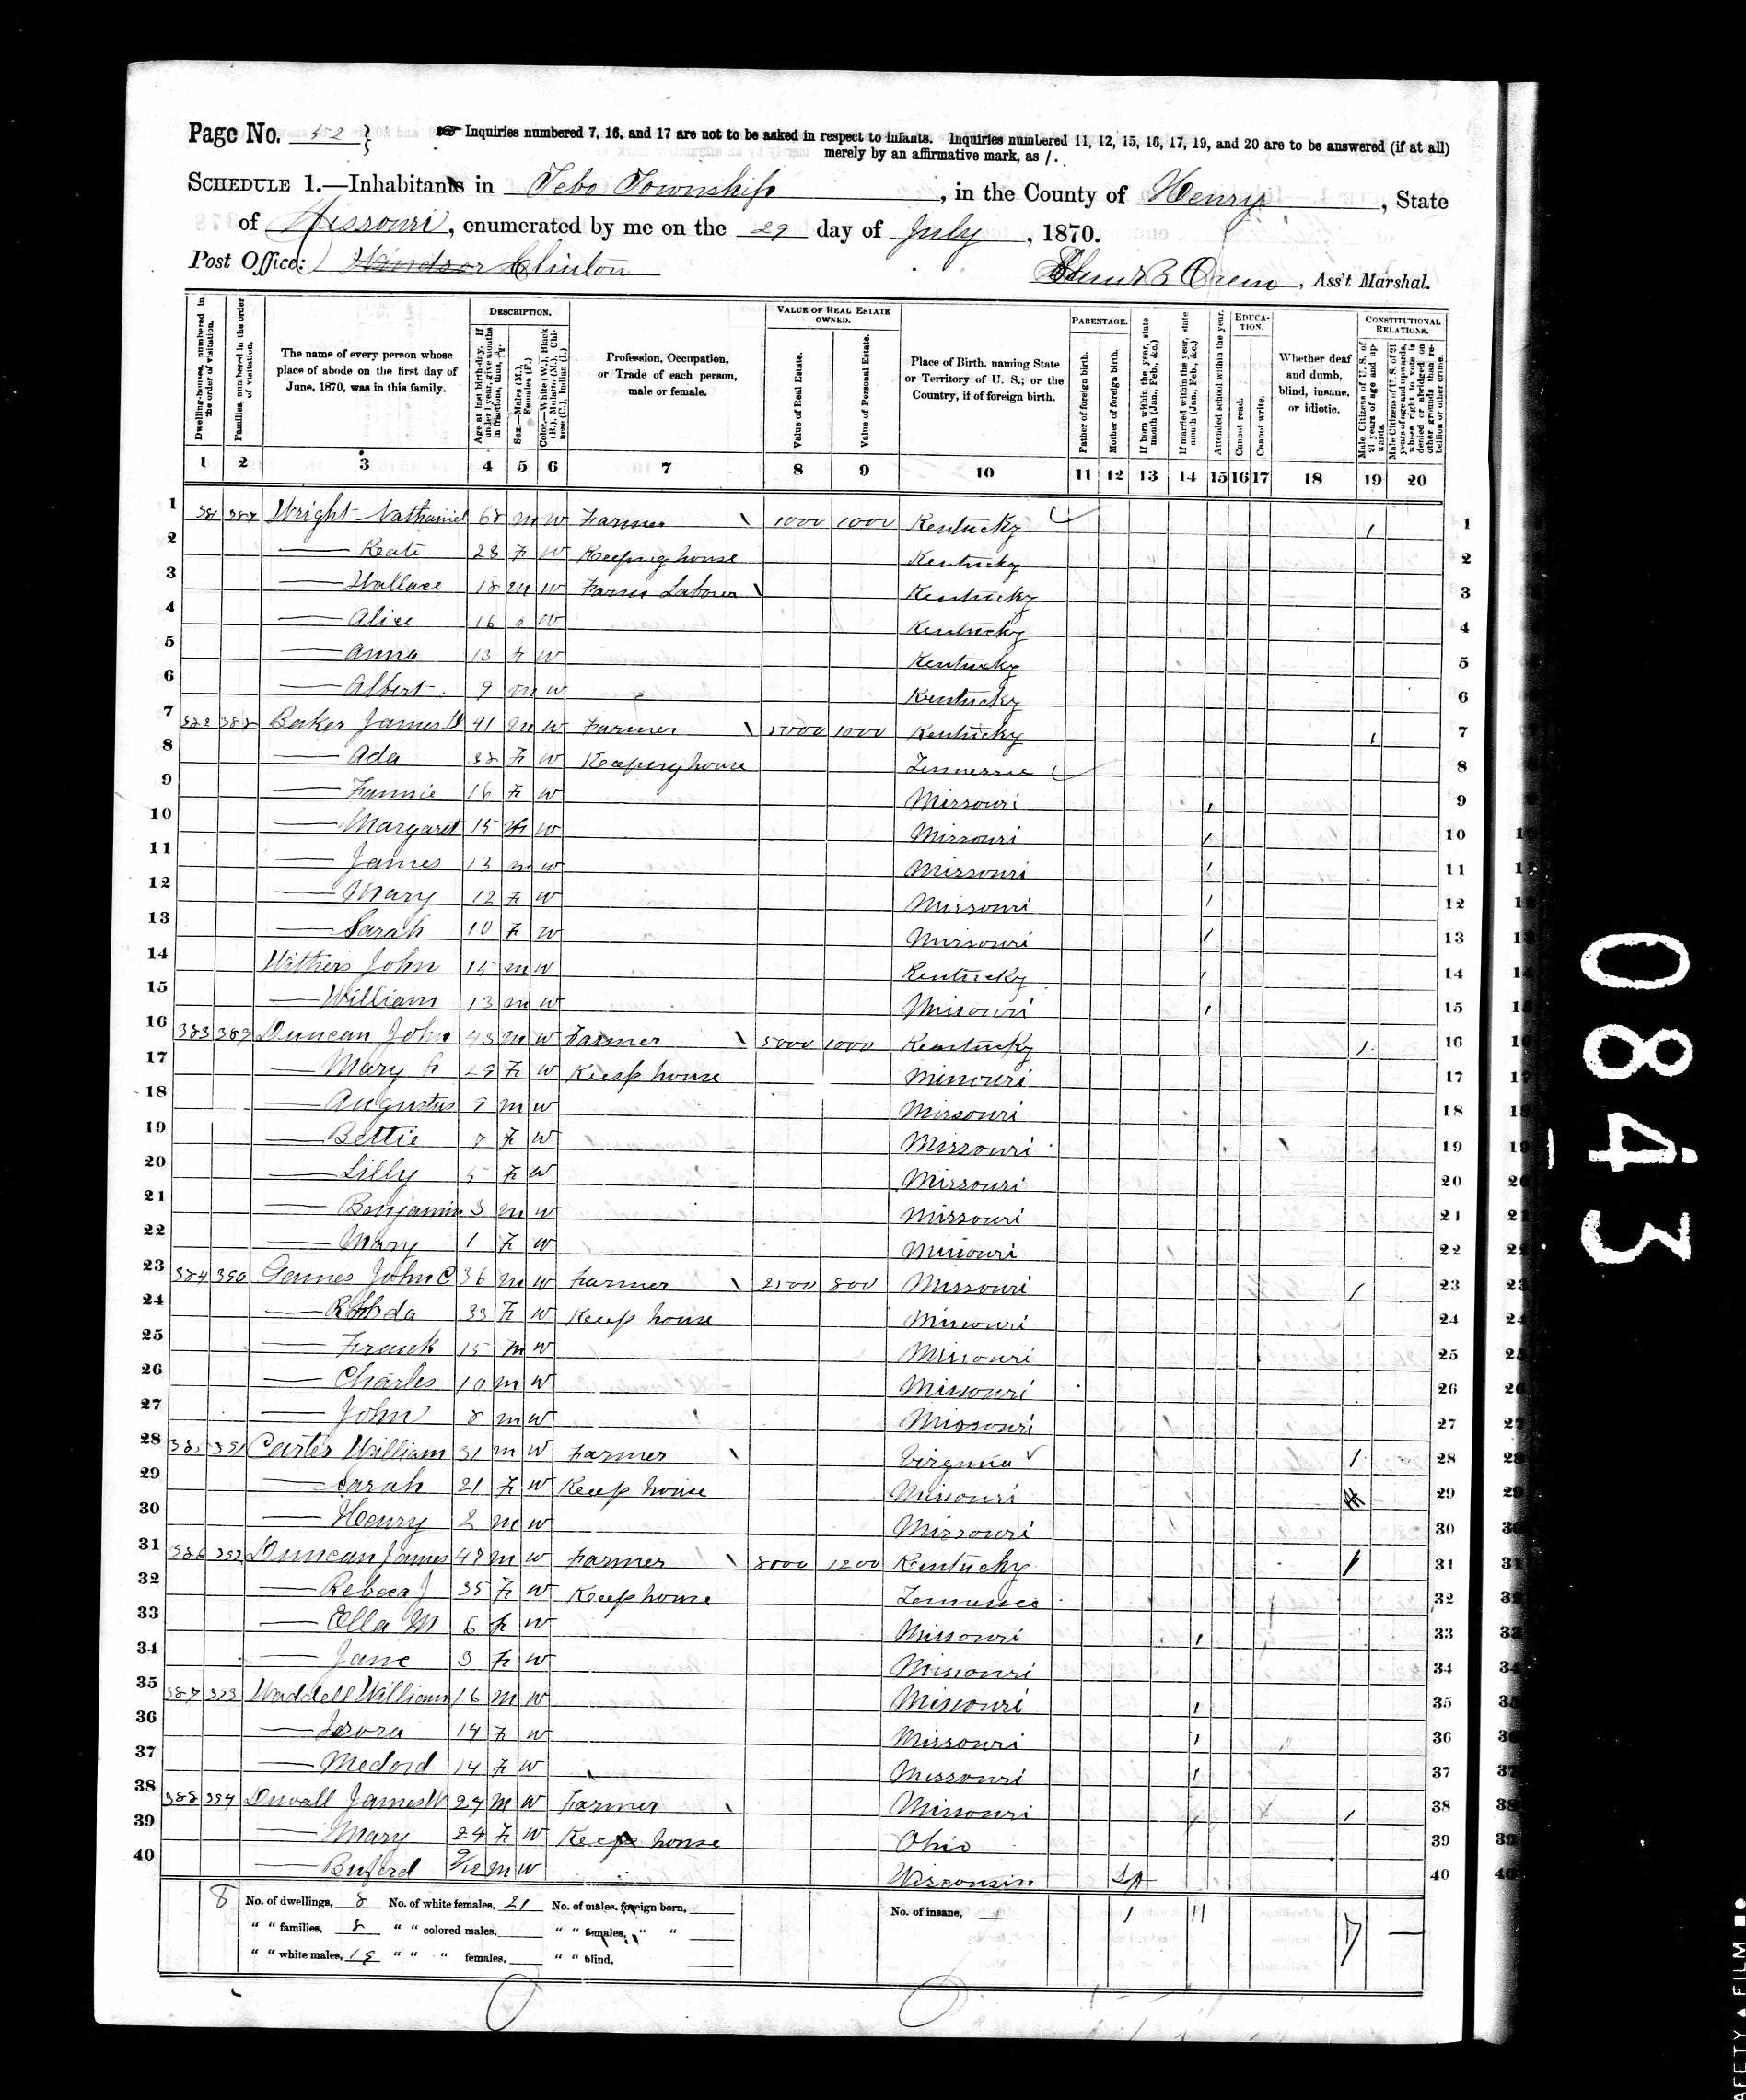 Page No. 52 }
Inquiries numbered 7, 16, and 17 are not to be asked in respect to infants. Inquiries numbered 11, 12, 15, 16, 17, 19, and 20 are to be answered (if at all)
merely by an affirmative mark, as /.
SCHEDULE 1.—Inhabitants in Tebo Township, in the County of Henry, State
of Missouri, enumerated by me on the 29 day of July, 1870.
Post Office: Windsor Clinton , Ass't Marshal.
Dwelling-houses, numbered in the order of visitation.
Families, numbered in the order of visitation.
The name of every person whose place of abode on the first day of June, 1870, was in this family.
DESCRIPTION.
Age at last birth-day. If under 1 year, give months in fractions, thus,
Sex.—Males (M.), Females (F.)
Color.—White (W.), Black (B.), Mulatto (M.), Chinese (C.), Indian (I.)
Profession, Occupation, or Trade of each person, male or female.
VALUE OF REAL ESTATE OWNED.
Value of Real Estate.
Value of Personal Estate.
Place of Birth, naming State or Territory of U. S.; or the Country, if of foreign birth.
PARENTAGE.
Father of foreign birth.
Mother of foreign birth.
If born within the year, state month (Jan., Feb., &c.)
If married within the year, state month (Jan., Feb., &c.)
Attended school within the year.
EDUCATION.
Cannot read.
Cannot write.
Whether deaf and dumb, blind, insane, or idiotic.
CONSTITUTIONAL RELATIONS.
Male Citizens of U. S. of 21 years of age and upwards.
Male Citizens of U. S. of 21 years of age and upwards, whose right to vote is denied or abridged on other grounds than rebellion or other crime.
1 2 3 4 5 6 7 8 9 10 11 12 13 14 15 16 17 18 19 20
1 381 387 Wright Nathaniel 68 M W Farmer 1000 1000 Kentucky / 1
2 — 28 F W Keeping house Kentucky 2
3 — Wallace 18 M W Farm Labourer Kentucky 3
4 — Alice 16 W Kentucky 4
5 — Anna 13 F W Kentucky 5
6 — Albert 9 M W Kentucky 6
7 382 388 Baker James 41 M W Farmer 1000 Kentucky / 7
8 — Ada 38 F W Keeping house Tennessee 8
9 — Fannie 16 F W Missouri / 9
10 — Margaret 15 F W Missouri / 10
11 — James 13 M W Missouri / 11
12 — Mary 12 F W Missouri / 12
13 — Sarah 10 F W Missouri / 13
14 Withers John 15 M W Kentucky / 14
15 — William 13 M W Missouri / 15
16 383 389 Duncan John 43 M W Farmer 5000 1000 Kentucky / 16
17 — Mary 29 F W Keep house Missouri 17
18 — Augustus 9 M W Missouri 18
19 — Bettie 7 F W Missouri 19
20 — Lilly 5 F W Missouri 20
21 — Benjamin 3 M W Missouri 21
22 — Mary 1 F W Missouri 22
23 384 390 John C 36 M W Farmer 2500 800 Missouri / 23
24 — Rhoda 33 F W Keep house Missouri 24
25 — Frank 15 M W Missouri 25
26 — Charles 10 M W Missouri 26
27 — John 8 M W Missouri 27
28 385 391 Carter William 31 M W Farmer Virginia / 28
29 — Sarah 21 F W Keep house Missouri 29
30 — Henry 2 M W Missouri 30
31 386 392 Duncan James 47 M W Farmer 8000 1200 Kentucky / 31
32 — Rebeca J 35 F W Keep house Tennessee 32
33 — Ella M 6 F W Missouri / 33
34 — Jane 3 F W Missouri 34
35 387 393 Waddell William 16 M W Missouri / 35
36 — 14 F W Missouri / 36
37 — 14 F W Missouri / 37
38 388 394 Duvall James W 27 M W Farmer Missouri / 38
39 — Mary 24 F W Keep house Ohio 39
40 — Buford 9/12 M W Wisconsin 40
8 No. of dwellings, 8 No. of white females, 21 No. of males, foreign born, No. of insane, 1 11 7 —
" " families, 8 " " colored males, " " females, " "
" " white males, 19 " " " females, " " blind,
0843
SAFETY ▲ FILM